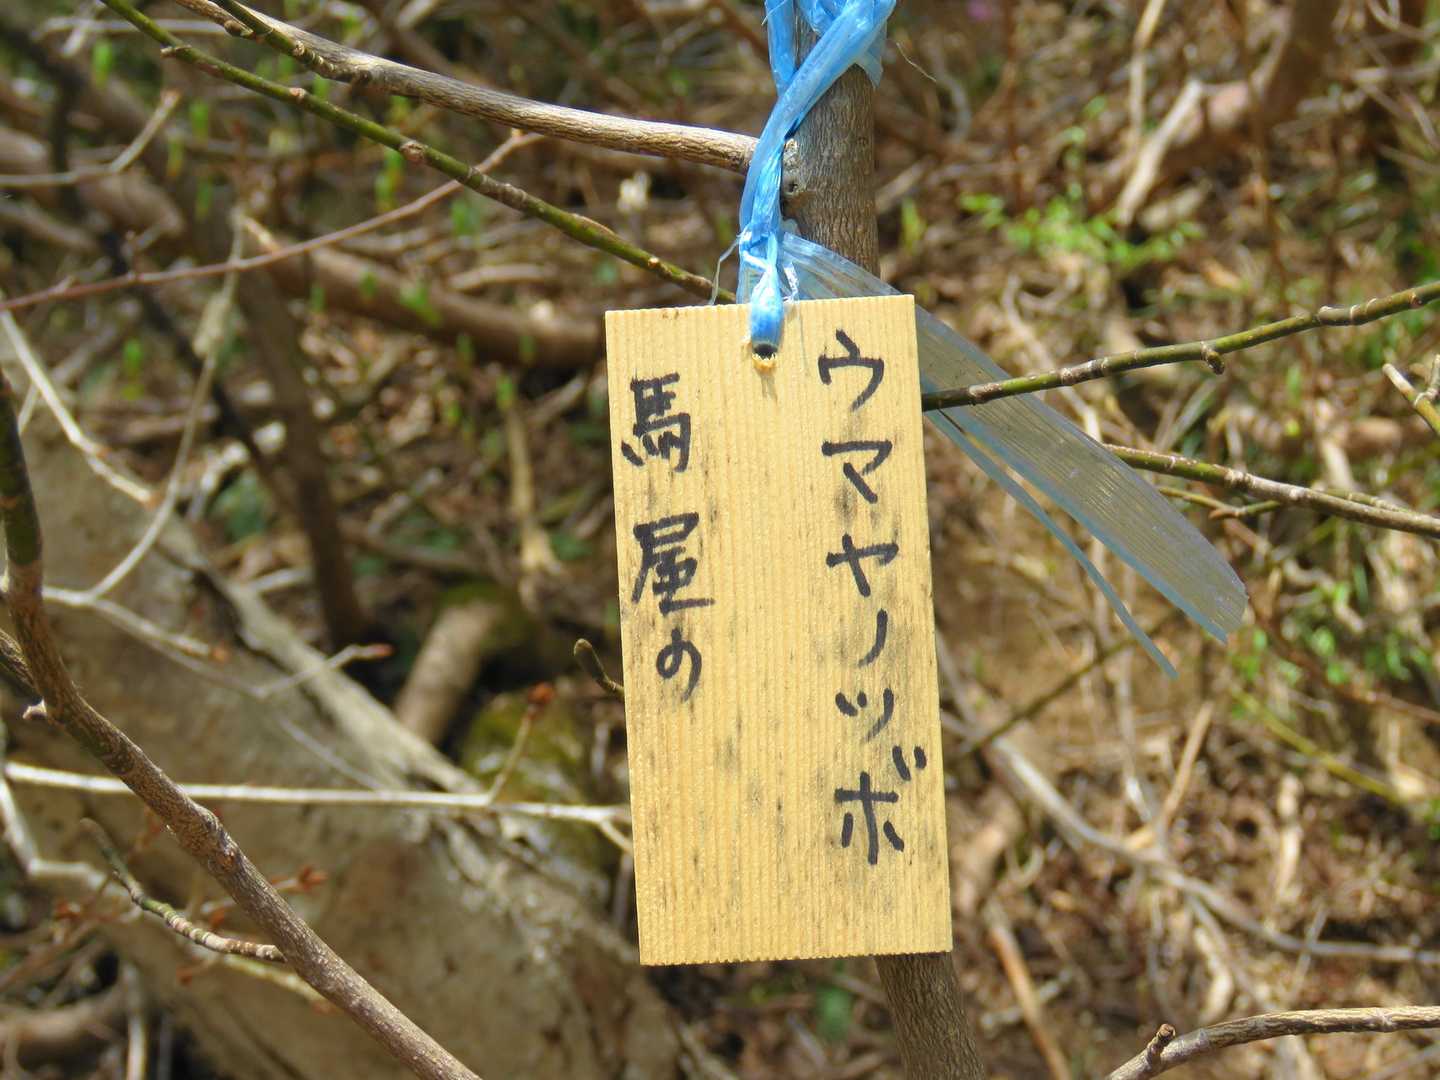 ウマヤノツボ
馬屋の